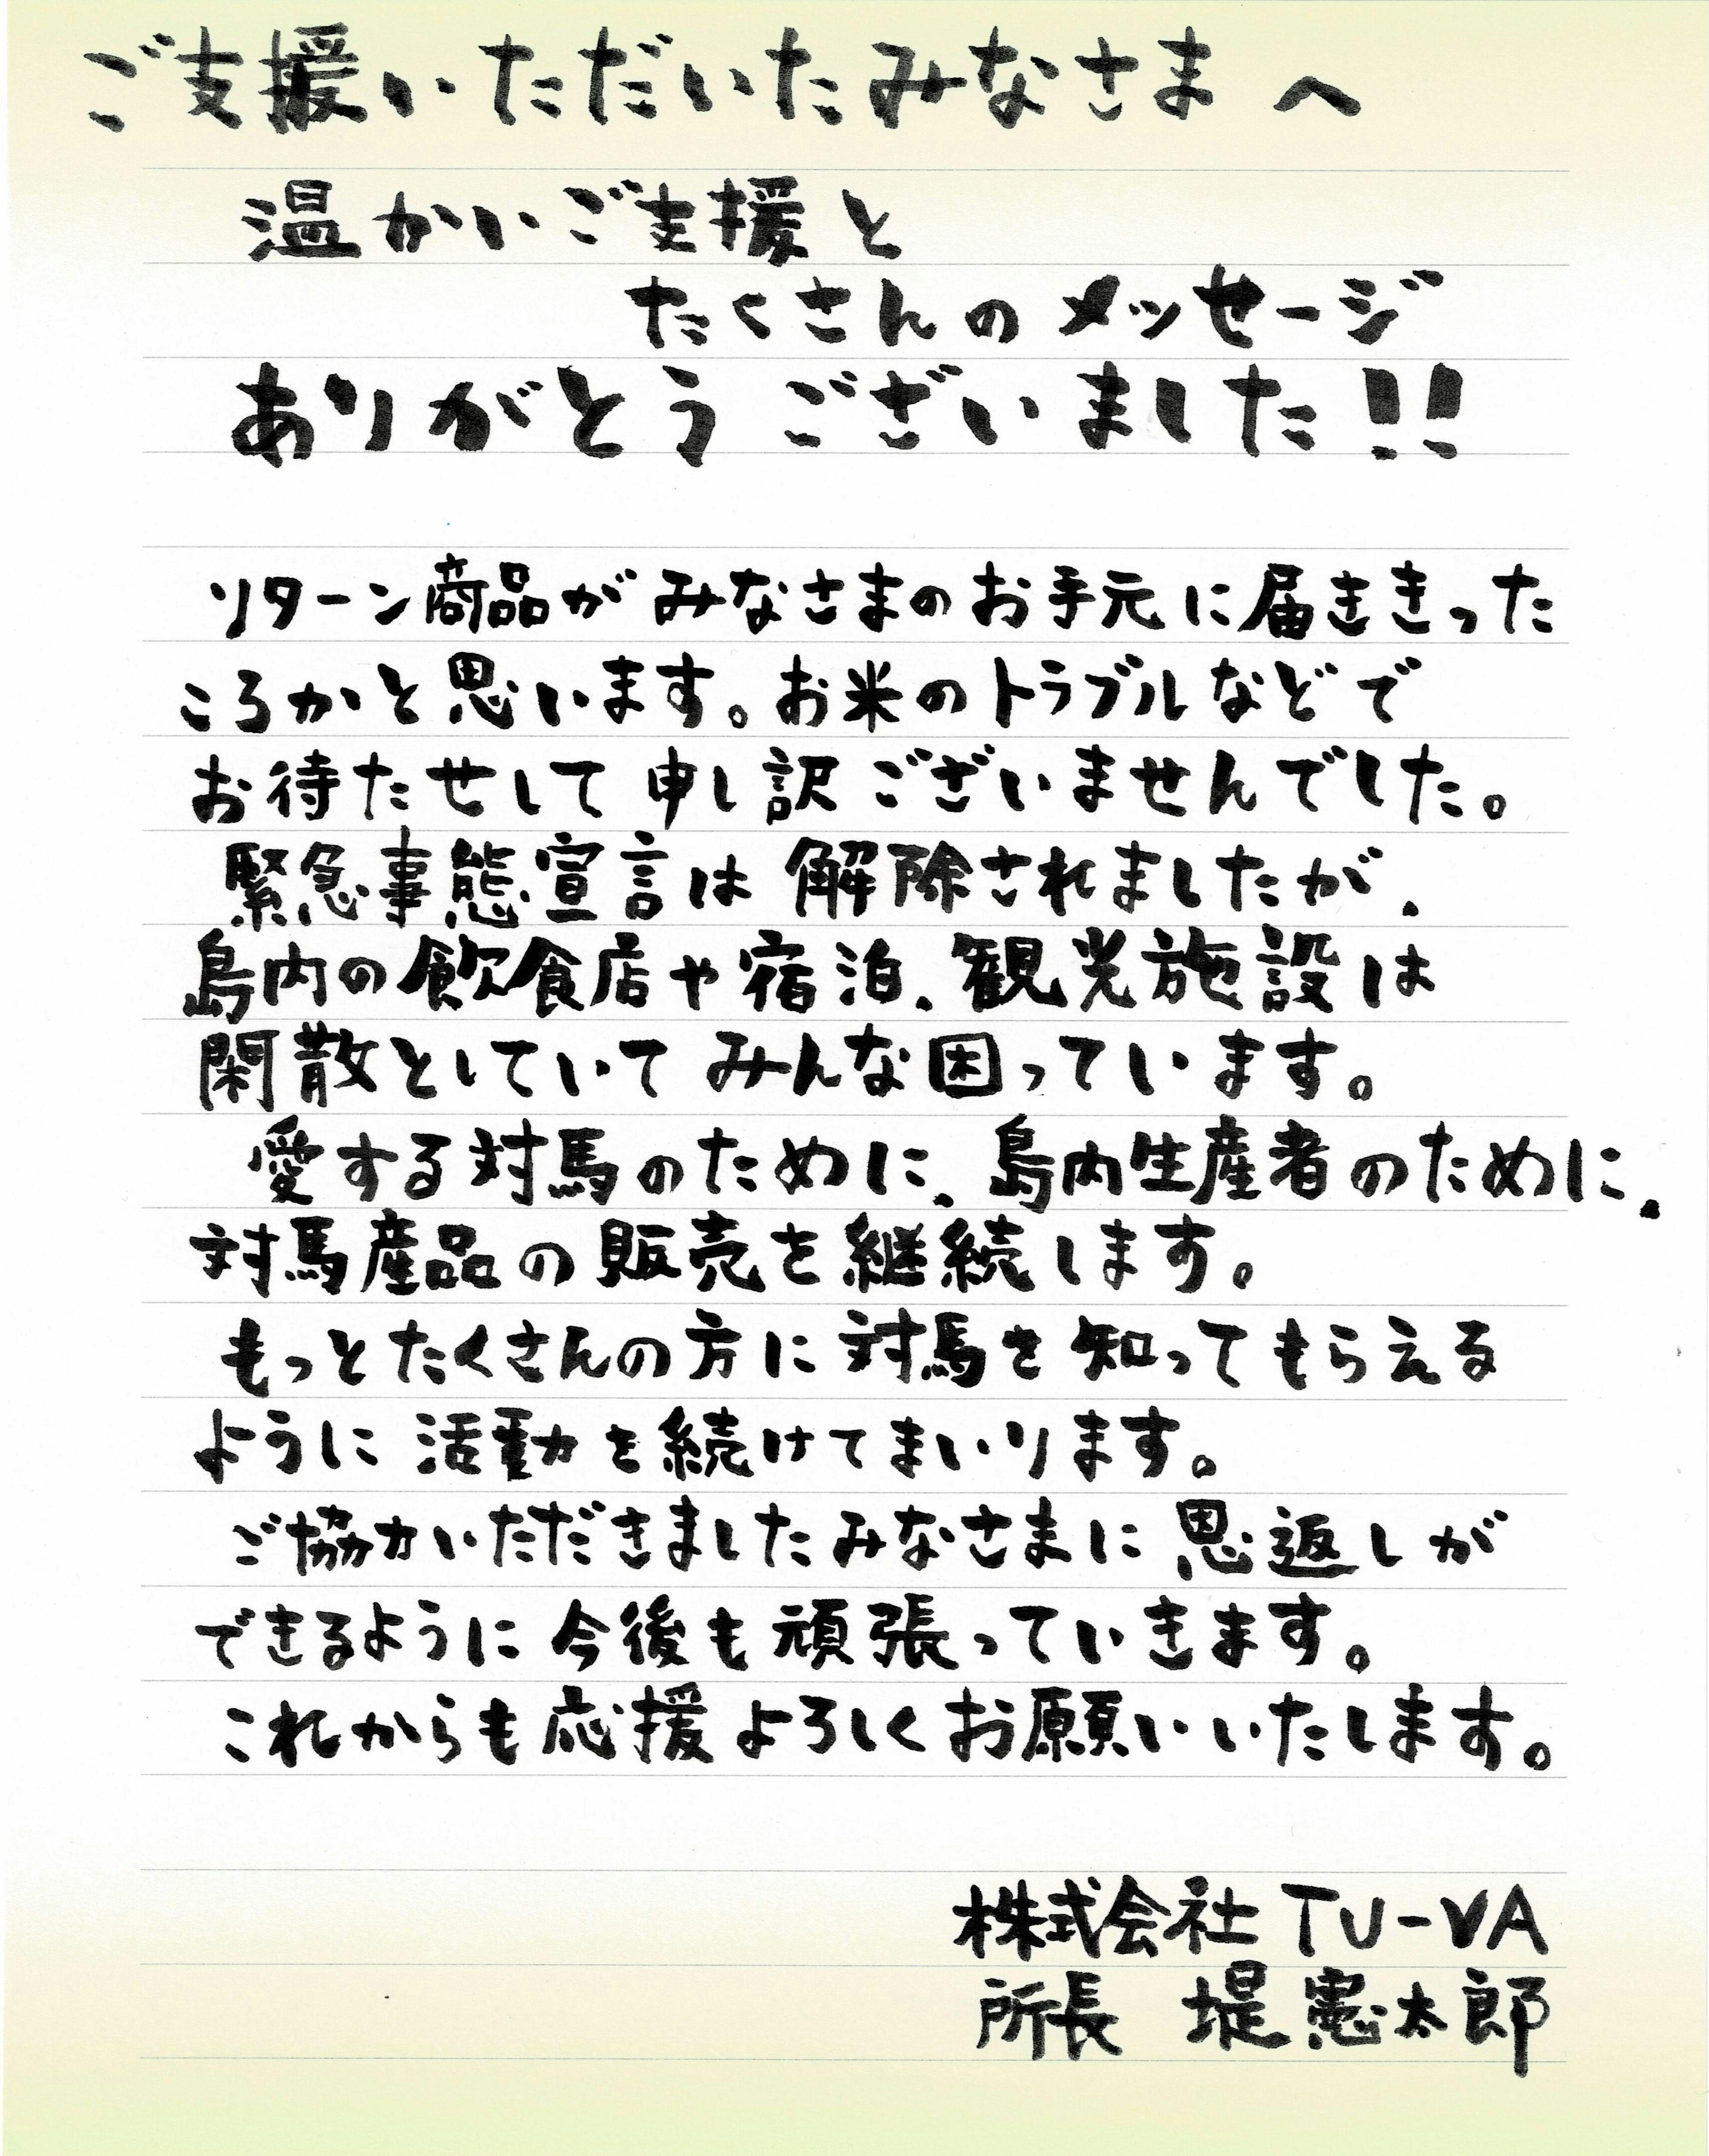 ご支援いただいたみなさまへ
温かいご支援と
たくさんのメッセージ
ありがとうございました!!
リターン商品がみなさまのお手元に届ききった
ころかと思います。お米のトラブルなどで
お待たせして申し訳ございませんでした。
緊急事態宣言は解除されましたが、
島内の飲食店や宿泊、観光施設は
閑散としていてみんな困っています。
愛する対馬のために、島内生産者のために、
対馬産品の販売を継続します。
もっとたくさんの方に対馬を知ってもらえる
ように活動を続けてまいります。
ご協力いただきましたみなさまに恩返しが
できるように今後も頑張っていきます。
これからも応援よろしくお願いいたします。
株式会社TU-VA
所長 堤憲太郎